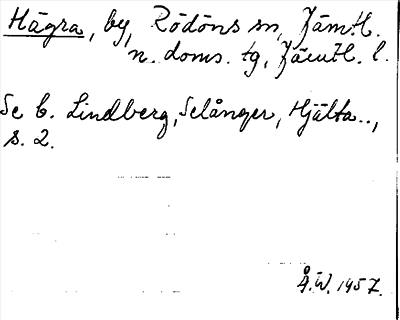 Hägra, by, Rödöns sn, Jämtl.
n. doms. tg, Jämtl. l.
Se C. Lindberg, Selånger, Hjälta..,
s. 2.
Å.W. 1957.